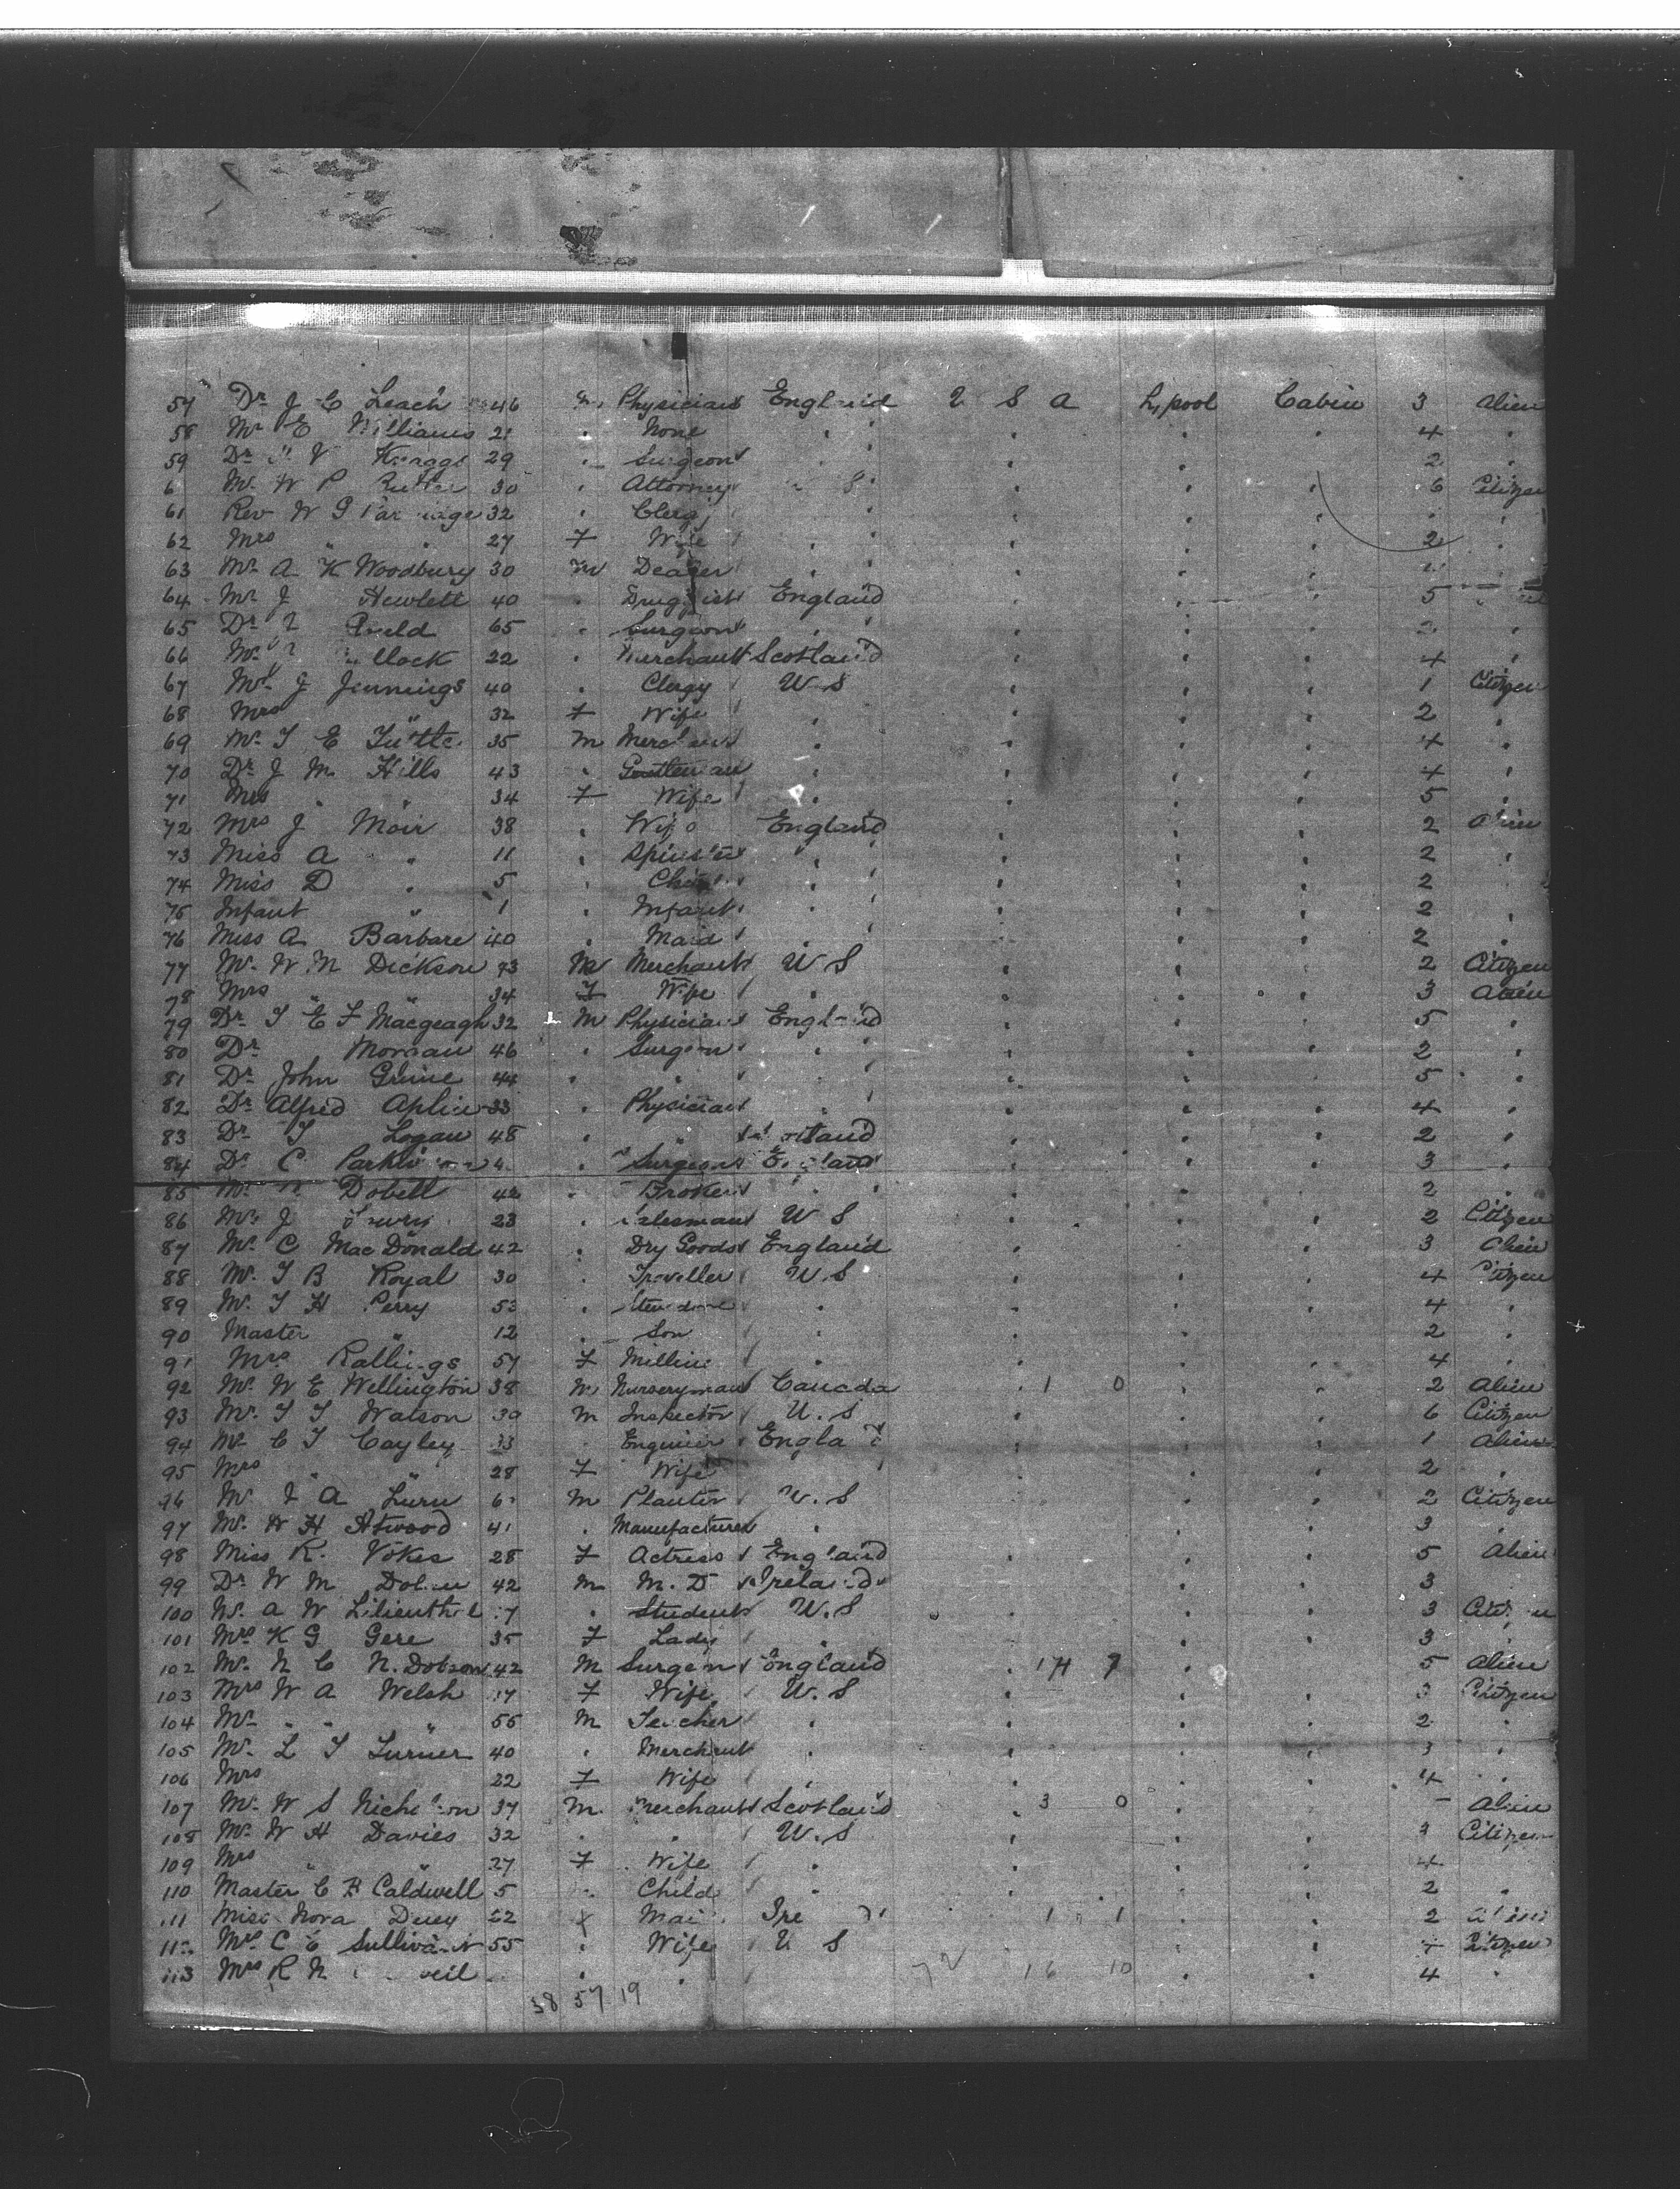 57 Dr J C Leach 46 m Physician England U S A L'pool Cabin 3 Alien
58 Mr E Williams 21 " None " " " " " 4 "
59 Dr 29 " Surgeon " " " " " 2 "
Mr W P 30 " Attorney " S " " " 6 Citizen
61 Rev W G 32 " " " " "
62 Mrs " " 27 F Wife " " " " 2 "
63 Mr A K Woodbury 30 M Dealer " " " " "
64 Mr J Hewlett 40 " Druggist England " " " 5
65 Dr 65 " Surgeon " " " " 2 "
66 Mr 22 " Merchant Scotland " " " 4 "
67 Mr J Jennings 40 " Clergy U S " " " 1 Citizen
68 Mrs " 32 F Wife " " " " 2 "
69 Mr T E Tuttle 35 m Merchant " " " " 4 "
70 Dr J M Hills 43 " Gentleman " " " " 4 "
71 Mrs " " 34 F Wife " " " " 5 "
72 Mrs J Moir 38 " Wife England " " " 2 Alien
73 Miss A " 11 " Spinster " " " " 2 "
74 Miss D " 5 " Child " " " " 2
75 Infant " 1 " Infant " " " " 2 "
76 Miss A Barbare 40 " Maid " " " " 2 "
77 Mr W N Dickson M Merchant U S " " " 2 Citizen
78 Mrs " " 34 F Wife " " " " 3 Alien
79 Dr T E F Macgeagh 32 M Physician England " " " 5 "
80 Dr Morgan 46 " Surgeon " " " " 2 "
81 Dr John 44 " " " " " " 5 "
82 Dr Alfred Aplin 33 " Physician " " " " 4 "
83 Dr T Logan 48 " " Scotland " " " 2 "
84 Dr C " Surgeon England " " " 3 "
85 Mr Dobell 42 " Broker " " " " 2 "
86 Mr J 23 " Salesman U S " " " 2 Citizen
87 Mr C MacDonald 42 " Dry Goods England " " " 3 Alien
88 Mr T B Royal 30 " Traveller U.S " " " 4 Citizen
89 Mr T H Perry 53 " " " " " 4 "
90 Master " 12 " Son " " " " 2 "
91 Mrs Rallings 57 F " " " " 4 "
92 Mr W E Wellington 38 m Nurseryman Canada " 1 0 " " 2 Alien
93 Mr T T Watson 30 m Inspector U.S " " " 6 Citizen
94 Mr C T Cayley 33 Engineer England " " " 1 Alien
95 Mrs " " 28 F Wife " " " " 2 "
96 Mr J A m Planter U.S " " " 2 Citizen
97 Mr W H Atwood 41 " Manufacturer " " " " 3 "
98 Miss R. Vokes 28 F Actress England " " " 5 Alien
99 Dr W M 42 m M.D Ireland " " " 3
100 Mr A W Lilienthal 17 " Student U.S " " " 3 Citizen
101 Mrs K G Gere 35 F Lady " " " " 3 "
102 Mr N C N. Dobson 42 M Surgeon England " 14 9 " " 5 Alien
103 Mrs W A Welsh F Wife U.S " " " 3 Citizen
104 Mr " " " 56 M Teacher " " " " 2 "
105 Mr L T Turner 40 " Merchant " " " " 3 "
106 Mrs 22 F Wife " " " " 4 "
107 Mr W S Nicholson 37 m Merchant Scotland " 3 0 " " Alien
108 Mr W H Davies 32 " " U.S " " " 3 Citizen
109 Mrs " " 27 F Wife " " " " 4
110 Master C F Caldwell 5 " Child " " " " 2 "
111 Miss Nora 22 F Maid Ireland 1 1 " " 2 Alien
112 Mrs C E Sullivant 55 " Wife U S " " " 4 Citizen
113 Mrs R N " " 72 16 10 " " 4 "
38 57 19